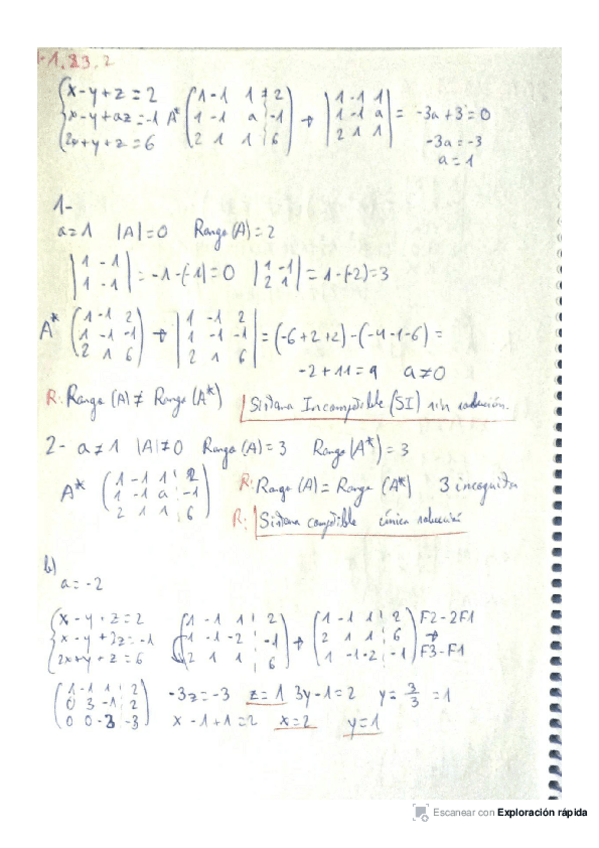 -1.23.2
{x-y+z=2
{x-y+az=-1 A* (1 -1 1 2 / 1 -1 a -1 / 2 1 1 6) → |1 -1 1 / 1 -1 a / 2 1 1| = -3a+3=0
{2x+y+z=6 -3a=-3
a=1
1-
a=1 |A|=0 Rango(A)=2
|1 -1 / 1 -1| = -1-(-1)=0 |1 -1 / 2 1| = 1-(-2)=3
A* (1 -1 2 / 1 -1 -1 / 2 1 6) → |1 -1 2 / 1 -1 -1 / 2 1 6| = (-6+2+2)-(-4-1-6)=
-2+11=9 a≠0
R: Rango (A) ≠ Rango (A*) Sistema Incompatible (SI) sin solución.
2- a≠1 |A|≠0 Rango(A)=3 Rango(A*)=3
A* (1 -1 1 2 / 1 -1 a -1 / 2 1 1 6) R: Rango (A) = Rango (A*) 3 incognitas
R: Sistema compatible única solución
b)
a=-2
{x-y+z=2 (1 -1 1 2 / 1 -1 -2 -1 / 2 1 1 6) → (1 -1 1 2 / 2 1 1 6 / 1 -1 -2 -1) F2-2F1
{x-y+2z=-1 →
{2x+y+z=6 F3-F1
(1 -1 1 2 / 0 3 -1 2 / 0 0 -3 -3) -3z=-3 z=1 3y-1=2 y=3/3=1
x-1+1=2 x=2 y=1
Escanear con Exploración rápida